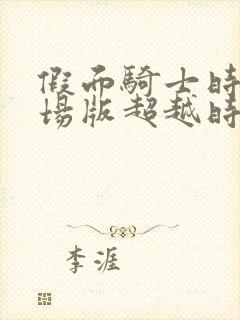 假面騎士時
場版超越時
李涯